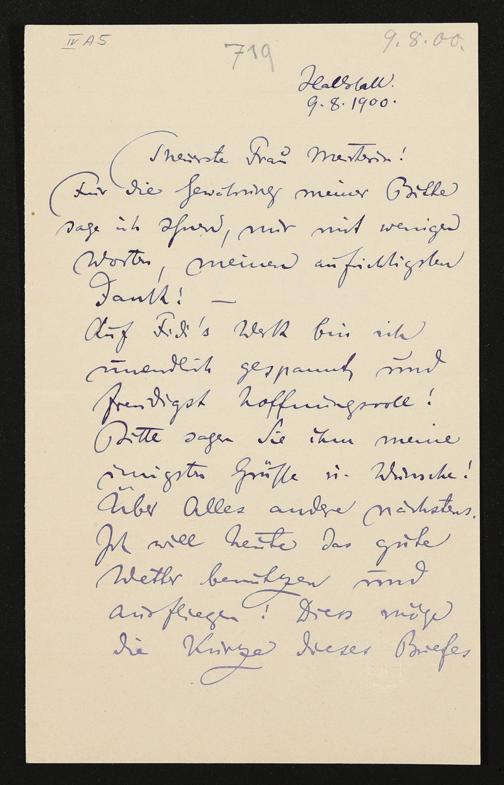 IV A 5
719
9.8.00.
Hallstatt.
9.8.1900.
Theuerste Frau Meisterin!
Für die Gewährung meiner Bitte
sage ich Ihnen, nur mit wenigen
Worten, meinen aufrichtigsten
Dank! —
Auf Fidi's Werk bin ich
unendlich gespannt, und
freudigst hoffnungsvoll!
Bitte sagen Sie ihm meine
innigsten Grüße u. Wünsche!
Über Alles andere nächstens.
Ich will heute das gute
Wetter benützen und
ausfliegen! Diess möge
die Kürze dieses Briefes